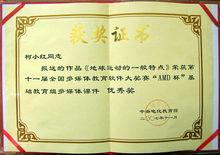 获奖证书
柯小红同志
报送的作品《地球运动的一般特点》荣获第
十一届全国多媒体教育软件大奖赛“AMD杯”基
础教育组多媒体课件 优秀奖
中央电化教育馆
二〇〇七年十一月